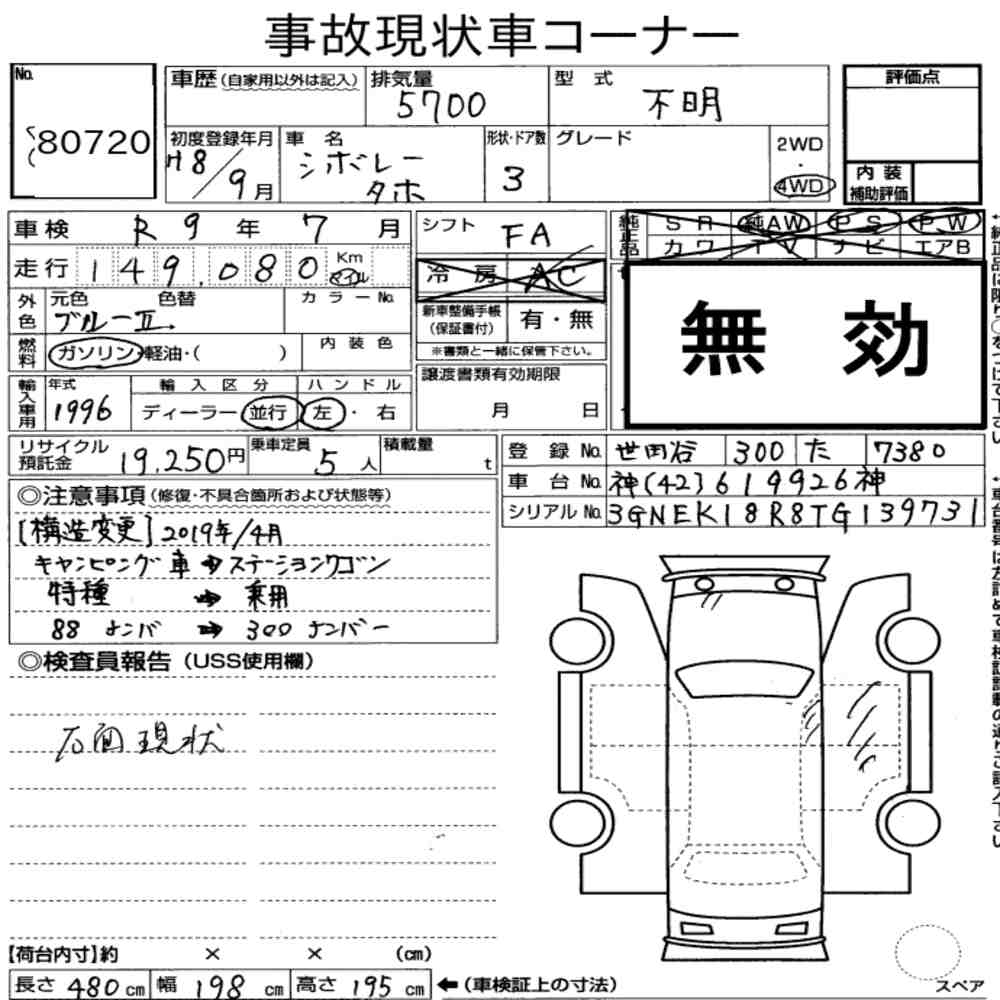 事故現状車コーナー
No. 80720
車歴 (自家用以外は記入) 排気量 5700 型式 不明 評価点
初度登録年月 H8/9月 車名 シボレー タホ 形状・ドア数 3 グレード 2WD・4WD 内装補助評価
車検 R 9 年 7 月 シフト FA 純正品 SR 純AW PS PW
カワ TV ナビ エアB
走行 149,080 Km マイル 冷房 AC
外色 元色 ブルーII. 色替 カラーNo. 新車整備手帳(保証書付) 有・無 無効
燃料 ガソリン・軽油・( ) 内装色 ※書類と一緒に保管下さい。
輸入車用 年式 1996 輸入区分 ディーラー・並行 ハンドル 左・右 譲渡書類有効期限 月 日
リサイクル預託金 19,250円 乗車定員 5人 積載量 t 登録No. 世田谷 300 た 7380
車台No. 神(42)619926神
シリアルNo. 3GNEK18R8TG139731
◎注意事項(修復・不具合箇所および状態等)
[構造変更] 2019年/4月
キャンピング車 → ステーションワゴン
特種 → 乗用
88ナンバ → 300ナンバー
◎検査員報告(USS使用欄)
右面現状
【荷台内寸】約 × × (cm)
長さ 480 cm 幅 198 cm 高さ 195 cm ←(車検証上の寸法)
スペア